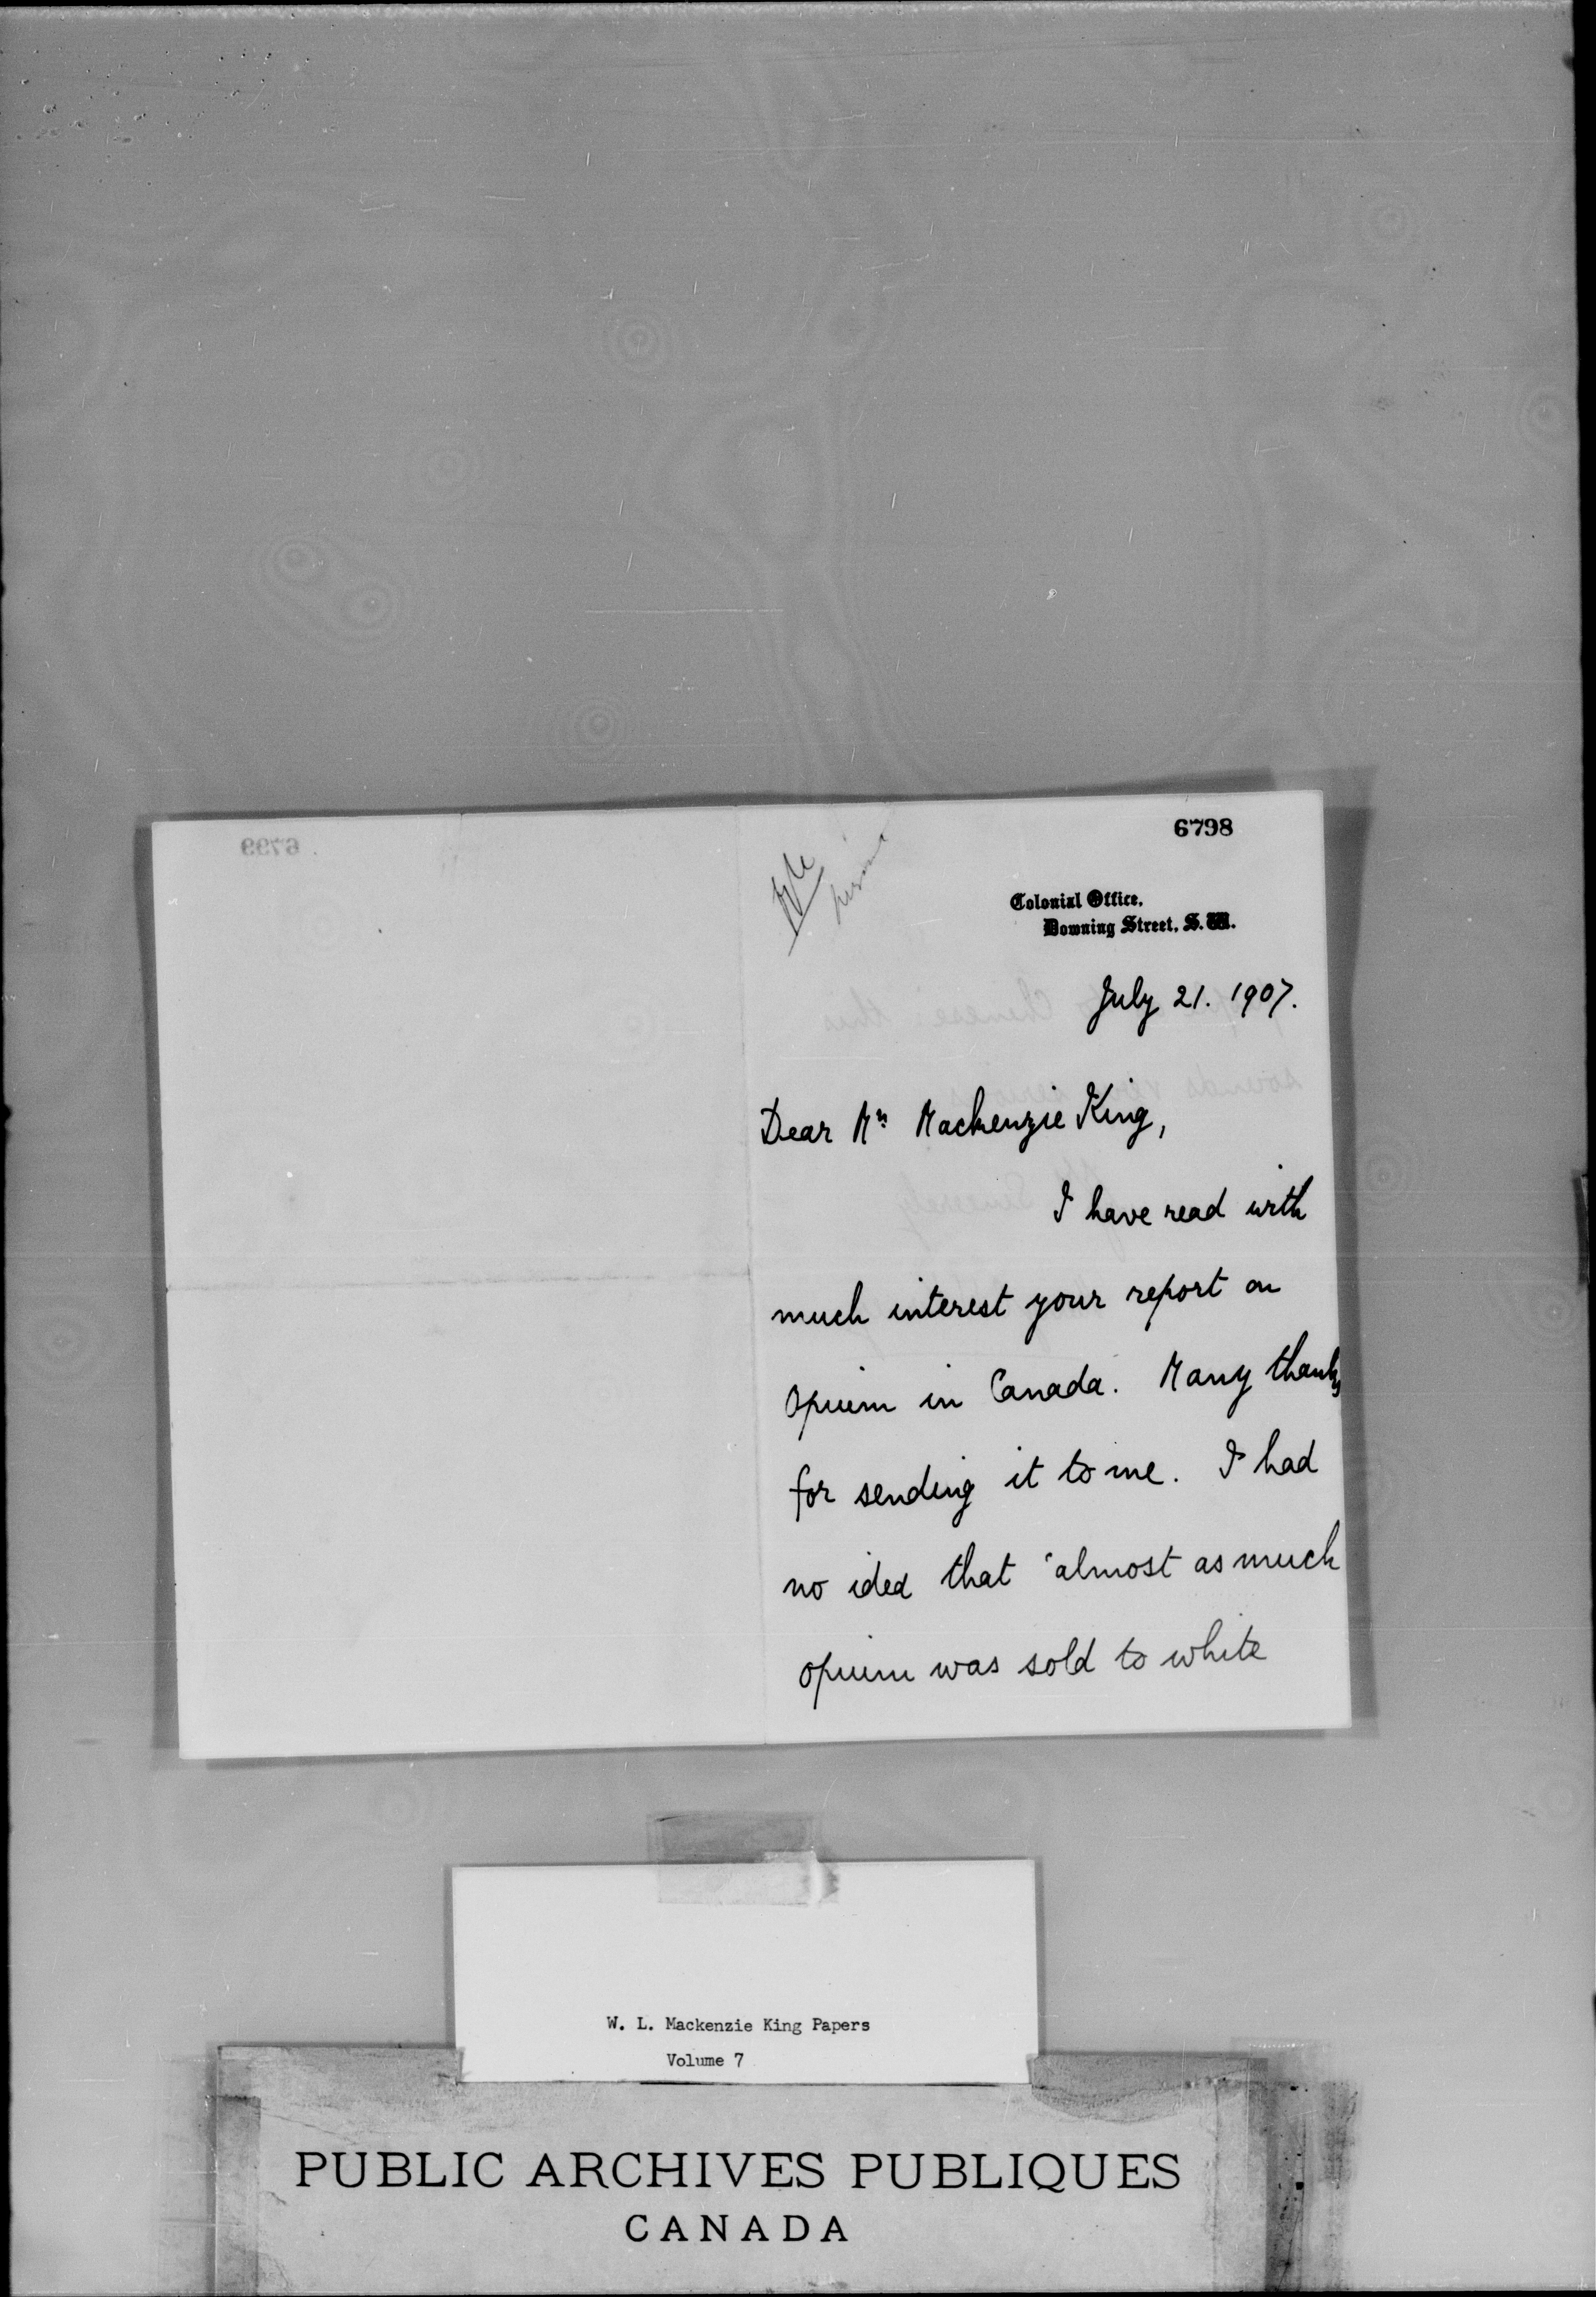 6798
Colonial Office,
Downing Street, S.W.
July 21. 1907.
Dear Mr. Mackenzie King,
I have read with
much interest your report on
Opium in Canada. Many thanks
for sending it to me. I had
no idea that 'almost as much
opium was sold to white
W. L. Mackenzie King Papers
Volume 7
PUBLIC ARCHIVES PUBLIQUES
CANADA